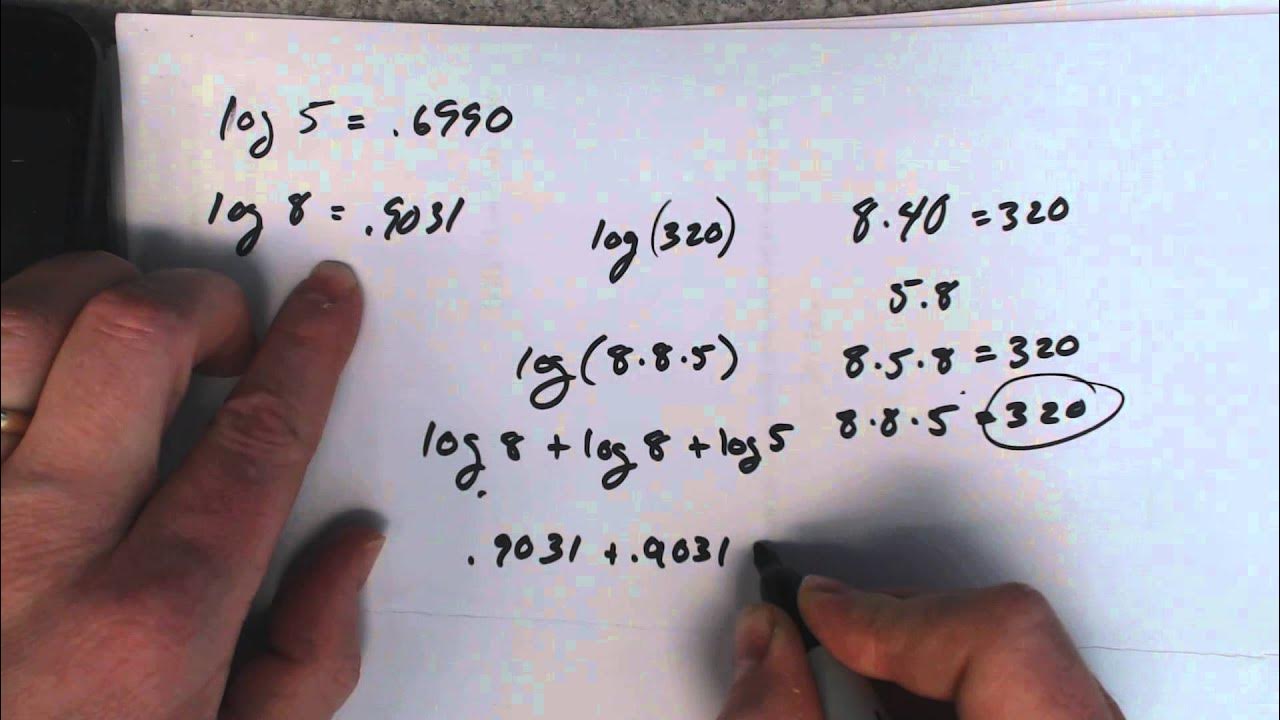 log 5 = .6990
log 8 = .9031
log(320)
8.40 = 320
5.8
log(8.8.5)
8.5.8 = 320
8.8.5 = 320
log 8 + log 8 + log 5
.9031 + .9031